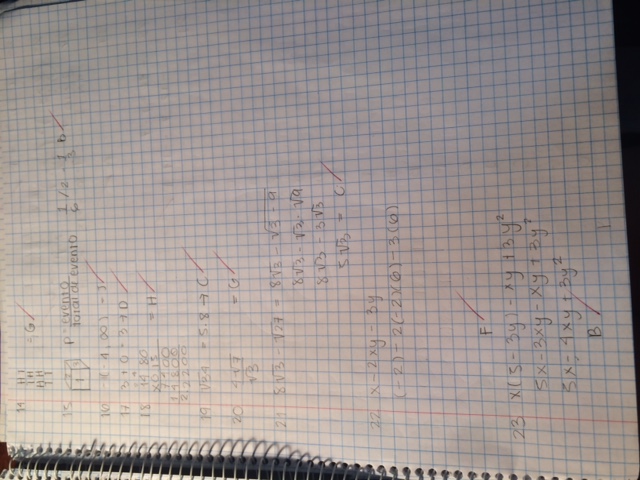 14
= G
15 1 P = evento / total de evento 1/6 /2 = 1/3 D
16
17 → D
18 = H
19 = 5.8 → C
20 √7 / √3 = G
21 8√3 - √27 = 8√3 - √3 · 9
8√3 - √3 · √9
8√3 - 3√3
5√3 = C
22 x - 2xy - 3y
(-2) - 2(-2)(6) - 3(6)
F
23 x(5 - 3y) - xy + 3y²
5x - 3xy - xy + 3y²
5x - 4xy + 3y²
B